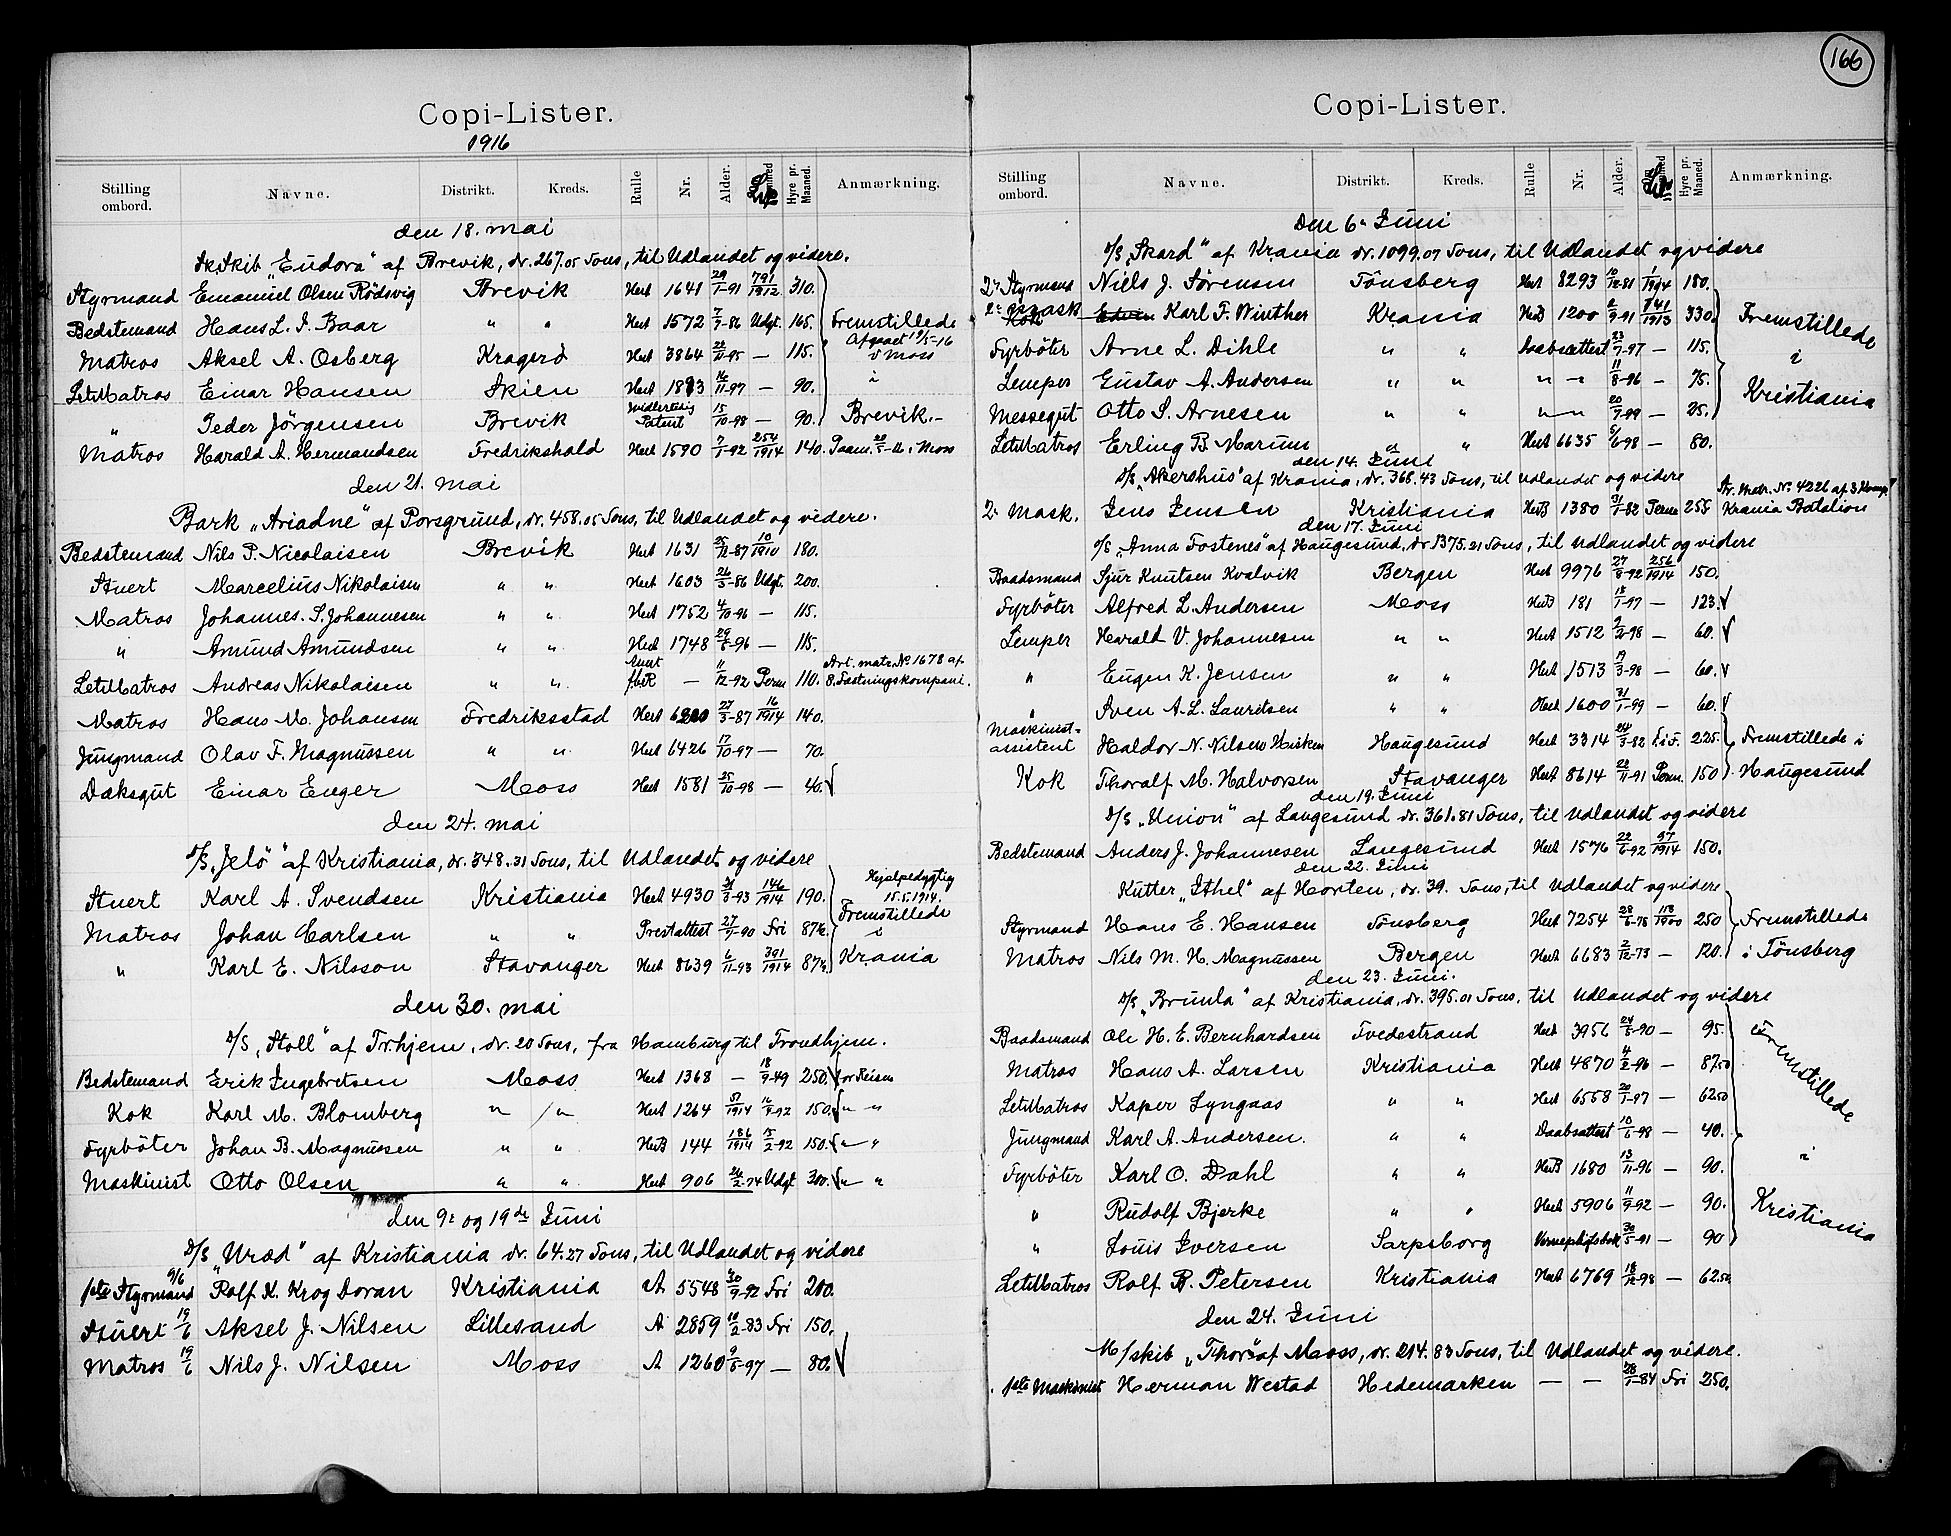 166
Copi-Lister.
1916
Stilling ombord. Navne. Distrikt. Kreds. Rulle Nr. Alder. Hyre pr. Maaned. Anmærkning.
den 18. mai
Sk.Skib „Eudora" af Brevik, dr. 267.05 Tons, til Udlandet og videre.
Styrmand Emanuel Olsen Rödsvig Brevik Hert 1641 29/1-91 791/1312 310.
Bedstemand Hans L. I. Baar " " Hert 1572 7/7-86 Udgt. 165. Fremstillede
Matros Aksel A. Osberg Kragerö Hert 3864 22/11-95 — 115. Afgaaet 19/5-16 v Moss
LetMatros Einar Hansen Skien Hert 1883 16/11-97 — 90. i
" Peder Jörgensen Brevik Midlertidig Patent 15/10-98 — 90. Brevik.-
Matros Harald A. Hermandsen Fredrikshald Hert 1590 7/1-92 254/1914 140. Paam. 20/5-16 i Moss
den 21. mai
Bark „Ariadne" af Porsgrund, dr. 458.05 Tons, til Udlandet og videre.
Bedstemand Nils P. Nicolaisen Brevik Hert 1631 25/12-87 10/1910 180.
Stuert Marcelius Nikolaisen " " Hert 1603 26/3-86 Udgt. 200.
Matros Johannes. S. Johannesen " " Hert 1752 4/10-96 — 115.
" Amund Amundsen " " Hert 1748 29/6-96 — 115.
LetMatros Andreas Nikolaisen " " — 11/12-92 Perm 110. Art. matr. No 1678 af 8. Fæstningskompani.
Matros Hans M. Johansen Fredriksstad Hert 27/3-87 16/1914 140.
Jungmand Olav F. Magnussen " " Hert 6426 17/10-97 — 70.
Dæksgut Einar Enger Moss Hert 1581 25/10-98 — 40.
den 24. mai
D/S „Jelö" af Kristiania, dr. 348.31 Tons, til Udlandet og videre
Stuert Karl A. Svendsen Kristiania Hert 4930 21/8-93 146/1914 190. Hjelpedygtig 15.5.1914.
Matros Johan Carlsen " " Prestattest 27/7-90 Fri 87½. Fremstillede i
" Karl E. Nilsson Stavanger Hert 8639 6/11-93 391/1914 87½ Krania
den 30. mai
D/S „Stoll" af Trhjem, dr. 20 Tons, fra Hamburg til Trondhjem.
Bedstemand Erik Ingebretsen Moss Hert 1368 — 18/9-49 250. for Reisen
Kok Karl M. Blomberg " " Hert 1264 57/1914 16/9-92 150. " "
Fyrböter Johan B. Magnussen " " HertB 144 186/1914 15/2-92 150. " "
Maskinist Otto Olsen " " Hert 906 26/2-74 Udgt 300. " "
den 9de og 19de Juni
D/S „Uræd" af Kristiania dr. 64.27 Tons, til Udlandet og videre
9/6 1ste Styrmand Rolf K. Krog Doran Kristiania A 5548 30/9-92 Fri 200.
Stuert 19/6 Aksel J. Nilsen Lillesand A 2859 10/2-83 Fri 150.
Matros 19/6 Nils J. Nilsen Moss A 1260 9/8-97 — 80.
Copi-Lister.
Stilling ombord. Navne. Distrikt. Kreds. Rulle Nr. Alder. Hyre pr. Maaned. Anmærkning.
Den 6. Juni
D/S „Skard" af Krania dr. 1099.07 Tons, til Udlandet og videre
2. Styrmand Niels J. Sørensen Tönsberg Hert 8293 10/12-81 1/1904 180.
2. Mask Karl F. Winther Krania HertB 1200 2/9-91 841/1913 330. Fremstillede
Fyrböter Arne L. Dihle " " Daabsattest 23/7-97 — 115. i
Lemper Gustav A. Andersen " " " " 11/8-96 — 75. Kristiania
Messegut Otto S. Arnesen " " " " 20/7-99 — 25.
LetMatros Erling B. Marum " " Hert 6635 5/6-98 — 80.
den 14. Juni
D/S „Akershus" af Krania, dr. 368.43 Tons, til Udlandet og videre
2. Mask. Jens Jensen Kristiania HertB 1380 31/1-82 Perm 255. Ar. Matr. No 4226 af 3 Komp. Krania Batalion
den 17. Juni
D/S „Anna Fostenes" af Haugesund. dr. 1375.21 Tons, til Udlandet og videre
Baadsmand Sjur Knutsen Kvalvik Bergen Hert 9976 27/8-92 256/1914 150.
Fyrböter Alfred L. Andersen Moss HertB 181 18/1-97 — 123.
Lemper Harald V. Johannesen " " Hert 1512 9/12-98 — 60.
" Eugen K. Jensen " " Hert 1513 19/3-98 — 60.
" Sven A. L. Lauritsen " " Hert 1600 31/1-99 — 60.
Maskinist-assistent Haldor N. Nilsen Haugesund Hert 3314 24/3-82 225. Fremstillede i
Kok Thoralf M. Halvorsen Stavanger Hert 8614 28/11-91 Perm. 150. Haugesund
den 19. Juni
D/S „Union" af Langesund dr. 361.81 Tons, til Udlandet og videre
Bedstemand Anders J. Johannesen Langesund Hert 1576 22/6-92 97/1914 150.
den 22. Juni
Kutter „Ethel" af Horten, dr. 39. Tons, til Udlandet og videre
Styrmand Hans E. Hansen Tönsberg Hert 7254 28/6-78 118/1900 250 Fremstillede
Matros Nils M. H. Magnussen Bergen Hert 6683 2/12-73 — 120. i Tönsberg
den 23. Juni.
D/S „Brunla" af Kristiania, dr. 395.01 Tons, til Udlandet og videre
Baadsmand Ole H. E. Bernhardsen Tvedestrand Hert 3956 24/8-90 — 95. Fremstillede
Matros Hans A. Larsen Kristiania Hert 4870 4/2-96 — 87.50
LetMatros Kaper Lyngaas " " Hert 6558 20/1-97 — 62.50
Jungmand Karl A. Andersen. " " Daabsattest 10/6-98 — 40.
Fyrböter Karl O. Dahl " " HertB 1680 13/11-96 — 90. i
" Rudolf Bjerke " " Hert 5906 11/9-92 — 90. Kristiania
" Louis Iversen Sarpsborg Vernepligtsbok 30/5-91 — 90
LetMatros Rolf B. Petersen Kristiania Hert 6769 18/12-98 — 62.50
den 24. Juni
M/skib „Thor" af Moss, dr. 214.83 Tons, til Udlandet og videre.
1ste Maskinist Herman Westad Hedemarken — — 28/1-84 Fri 250.